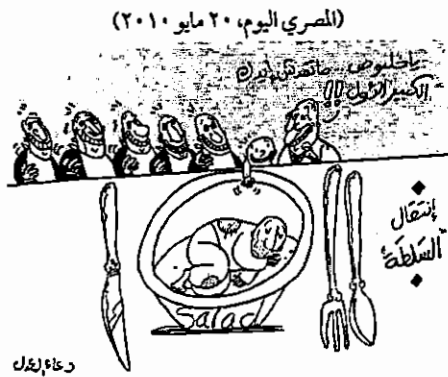 (المصري اليوم، ٢٠ مايو ٢٠١٠)
يا حلبوص ماتمدش إيدك
الكبير الأول!!
إنتقال
"السلطة"
Salad
دعاء العدل